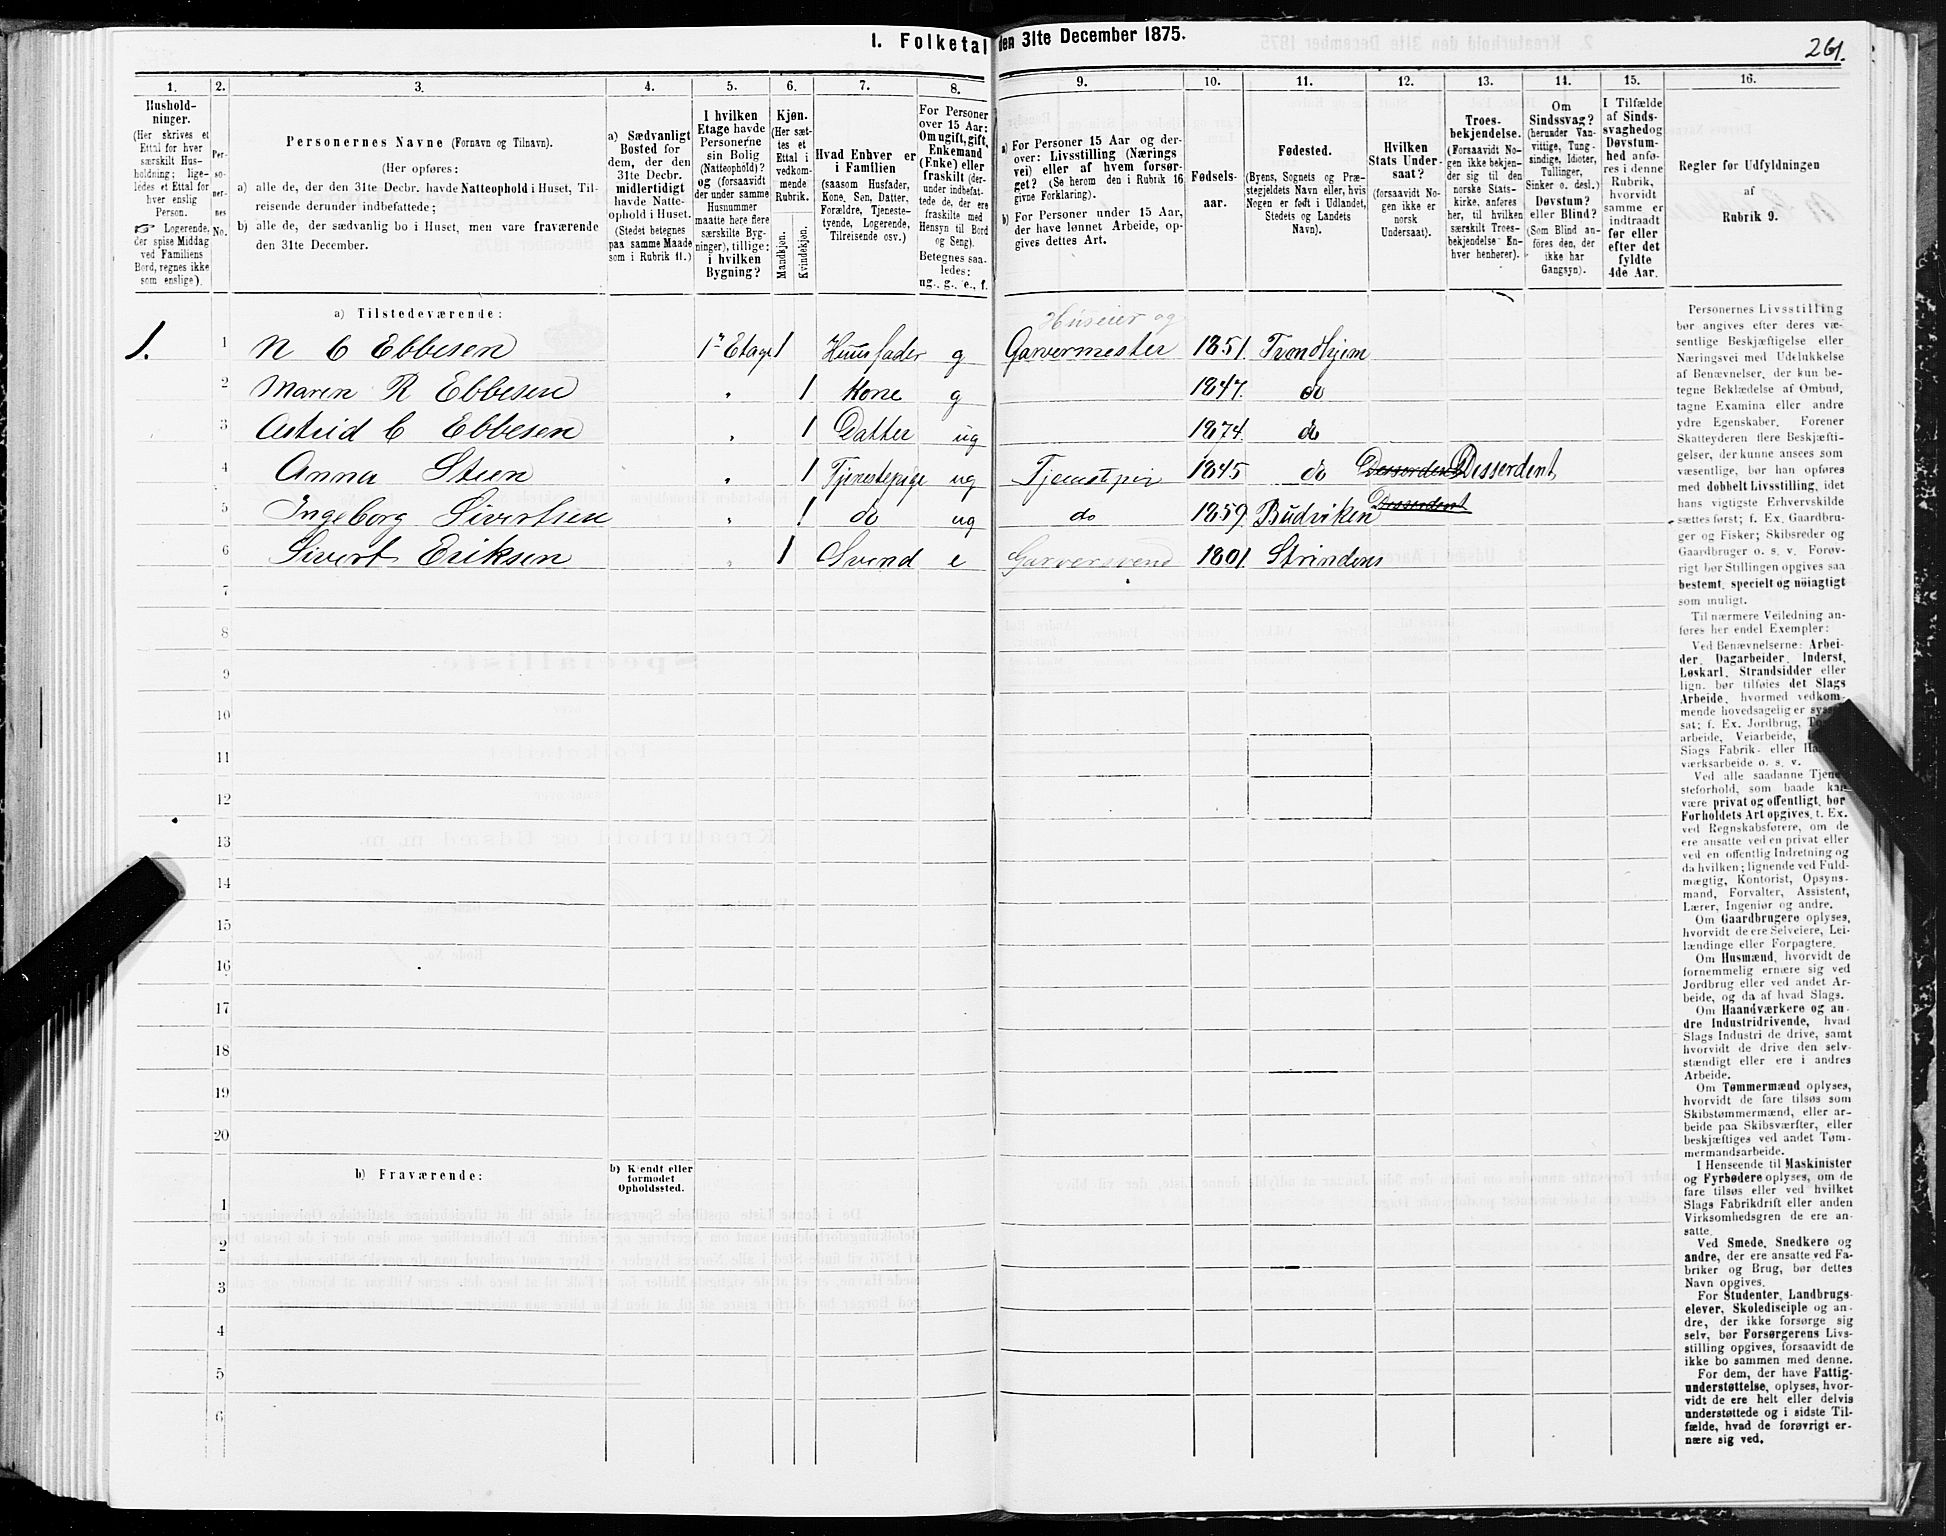 1. Folketal den 31te December 1875.
261.
1. 2. 3. 4. 5. 6. 7. 8. 9. 10. 11. 12. 13. 14. 15. 16.
Hushold-
ninger.
(Her skrives et
Ettal for hver
særskilt Hus-
holdning; lige-
ledes et Ettal for
hver enslig
Person.
☞ Logerende,
der spise Middag
ved Familiens
Bord, regnes ikke
som enslige).
Per-
so-
ner-
nes
No.
Personernes Navne (Fornavn og Tilnavn).
(Her opføres:
a) alle de, der den 31te Decbr. havde Natteophold i Huset, Til-
reisende derunder indbefattede;
b) alle de, der sædvanlig bo i Huset, men vare fraværende
den 31te December.
a) Sædvanligt
Bosted for
dem, der den
31te Decbr.
midlertidigt
havde Natte-
ophold i Huset.
(Stedet betegnes
paa samme Maade
som i Rubrik 11.)
I hvilken
Etage havde
Personerne
sin Bolig
(Natteophold)?
og (forsaavidt
der under samme
Husnummer
maatte høre flere
særskilte Byg-
ninger), tillige:
i hvilken
Bygning?
Kjøn.
(Her sæt-
tes et
Ettal i
vedkom-
mende
Rubrik.
Mandkjøn.
Kvindekjøn.
Hvad Enhver er
i Familien
(saasom Husfader,
Kone, Søn, Datter,
Forældre, Tjeneste-
tyende, Logerende,
Tilreisende osv.)
For Personer
over 15 Aar:
Om ugift, gift,
Enkemand
(Enke) eller
fraskilt (der-
under indbefat-
tede de, ere
fraskilte med
Hensyn til Bord
og Seng).
Betegnes saa-
ledes:
ug., g., e., f.
a) For Personer 15 Aar og der-
over: Livsstilling (Nærings
vei) eller af hvem forsør-
get? (Se herom den i Rubrik 16
givne Forklaring).
b) For Personer under 15 Aar,
der have lønnet Arbeide, op-
gives dettes Art.
Fødsels-
aar.
Fødested.
(Byens, Sognets og Præ-
stegjeldets Navn eller, hvis
Nogen er født i Udlandet,
Stedets og Landets
Navn).
Hvilken
Stats Under-
saat?
(forsaavidt No-
gen ikke er
norsk
Undersaat).
Troes-
bekjendelse.
(Forsaavidt No-
gen ikke bekjen-
der sig til den
norske Stats-
kirke, anføres
her, til hvilken
særskilt Troes-
bekjendelse En-
hver henhører).
Om
Sindssvag?
(herunder Van-
vittige, Tung-
sindige, Idioter,
Tullinger,
Sinker o. desl.)
Døvstum?
eller Blind?
(Som Blind an-
føres den, der
ikke har
Gangsyn).
I Tilfælde
af Sinds-
svaghedog
Døvstum-
hed anfø-
res i denne
Rubrik,
hvorvidt
samme er
indtraadt
før eller
efter det
fyldte
4de Aar.
Regler for Udfyldningen
af
Rubrik 9.
a) Tilstedeværende:
Huseier og
1. 1 N C Ebbesen 1ste Etage 1 Huusfader g Garvermester 1851. Trondhjem
2 Maren R Ebbesen " 1 Kone g 1847. do
3 Astrid C Ebbesen " 1 Datter ug 1874. do
4 Anna Steen " 1 Tjenestepige ug Tjenestepig 1845 do Desserdent Desserdent,
5 Ingeborg Sivertsen " 1 do ug do 1859. Budviken Desserdent
6 Sivert Eriksen " 1 Svend e Garversvend 1801. Strindens
7
8
9
10
11
12
13
14
15
16
17
18
19
20
b) Fraværende:
b) Kjendt eller
formodet
Opholdssted.
1
2
3
4
5
6
Personernes Livsstilling
bør angives efter deres væ-
sentlige Beskjæftigelse eller
Næringsvei med Udelukkelse
af Benævnelser, der kun be-
tegne Beklædelse af Ombud,
tagne Examina eller andre
ydre Egenskaber. Forener
Skatteyderen flere Beskjæfti-
gelser, der kunne ansees som
væsentlige, bør han opføres
med dobbelt Livsstilling, idet
hans vigtigste Erhvervskilde
sættes først; f. Ex. Gaardbru-
ger og Fisker; Skibsreder og
Gaardbruger o. s. v. Forøv-
rigt bør Stillingen opgives saa
bestemt, specielt og nøiagtigt
som muligt.
Til nærmere Veiledning an-
føres her endel Exempler:
Ved Benævnelserne: Arbei-
der, Dagarbeider, Inderst,
Løskarl, Strandsidder eller
lign. bør tilføies det Slags
Arbeide, hvormed vedkom-
mende hovedsagelig er syssel-
sat; f. Ex. Jordbrug,
arbeide, Veiarbeide,
Slags Fabrik- eller
værksarbeide o. s. v.
Ved alle saadanne Tjene-
steforhold, som baade kan
være privat og offentligt, bør
Forholdets Art opgives, t. Ex.
ved Regnskabsførere, om de
ere ansatte ved en privat eller
ved en offentlig Indretning og
da hvilken; lignende ved Fuld-
mægtig, Kontorist, Opsyns-
mand, Forvalter, Assistent,
Lærer, Ingeniør og andre.
Om Gaardbrugere oplyses,
hvorvidt de ere Selveiere, Lei-
lændinge eller Forpagtere.
Om Husmænd, hvorvidt de
fornemmelig ernære sig ved
Jordbrug eller ved andet Ar-
beide, og da af hvad Slags.
Om Haandværkere og an-
dre Industridrivende, hvad
Slags Industri de drive, samt
hvorvidt de drive den selv-
stændigt eller ere i andres
Arbeide.
Om Tømmermænd oplyses,
hvorvidt de fare tilsøs som
Skibstømmermænd, eller ar-
beide paa Skibsværfter, eller
beskjæftiges ved andet Tøm-
mermandsarbeide.
I Henseende til Maskinister
og Fyrbødere oplyses, om de
fare tilsøs eller ved hvilket
Slags Fabrikdrift eller anden
Virksomhedsgren de ere an-
satte.
Ved Smede, Snedkere og
andre, der ere ansatte ved Fa-
briker og Brug, bør dettes
Navn opgives.
For Studenter, Landbrugs-
elever, Skoledisciple og an-
dre, der ikke forsørge sig
selv, bør Forsørgerens Livs-
stilling opgives, forsaavidt de
ikke bo sammen med denne.
For dem, der have Fattig-
understøttelse, oplyses, hvor-
vidt de ere helt eller delvis
understøttede og i sidste Til-
fælde, hvad de forøvrigt er-
nære sig ved.